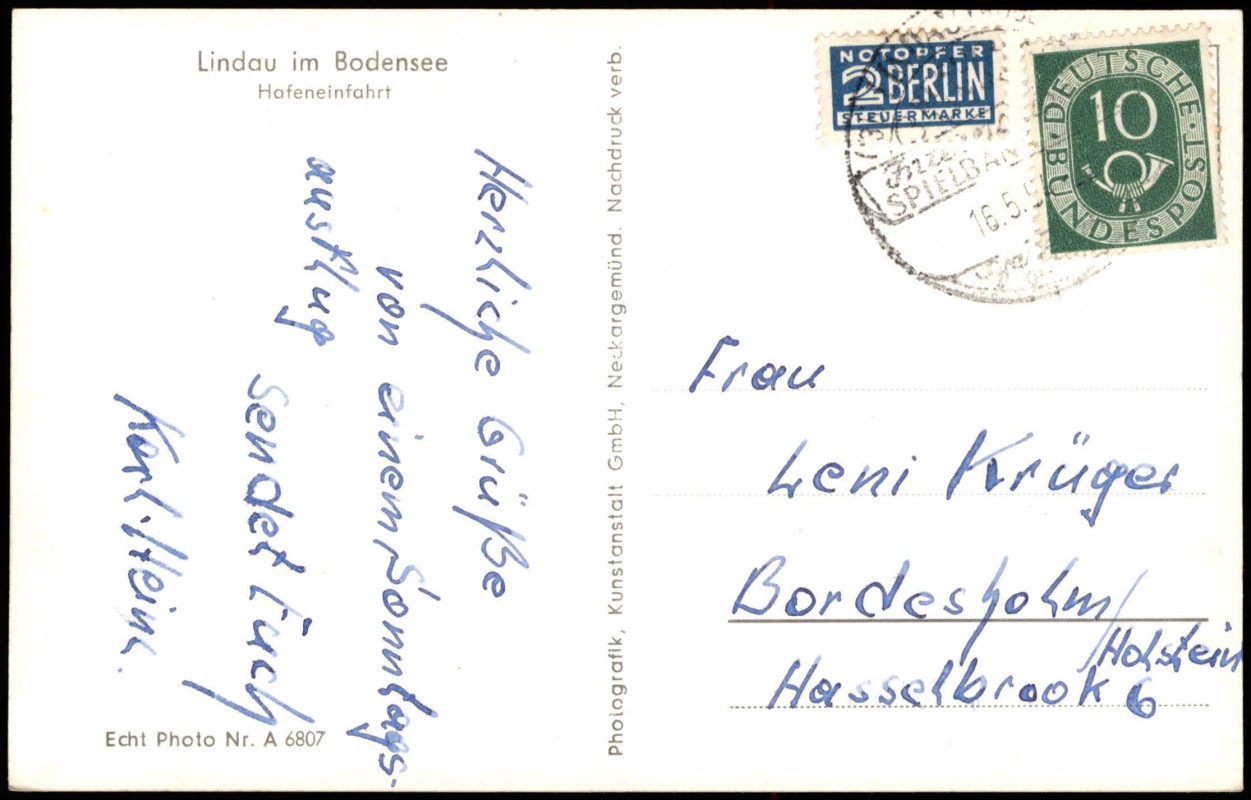 Lindau im Bodensee
Hafeneinfahrt
Herzliche Grüße
von einem Sonntags-
ausflug
sendet Euch
Karl-Hein.
Echt Photo Nr. A 6807
Photografik, Kunstanstalt GmbH, Neckargemünd. Nachdruck verb.
NOTOPFER
2 BERLIN
STEUERMARKE
DEUTSCHE BUNDESPOST
10
SPIELBAN
16.5.5
Frau
Leni Krüger
Bordesholm/
Holstein
Hasselbrook 6